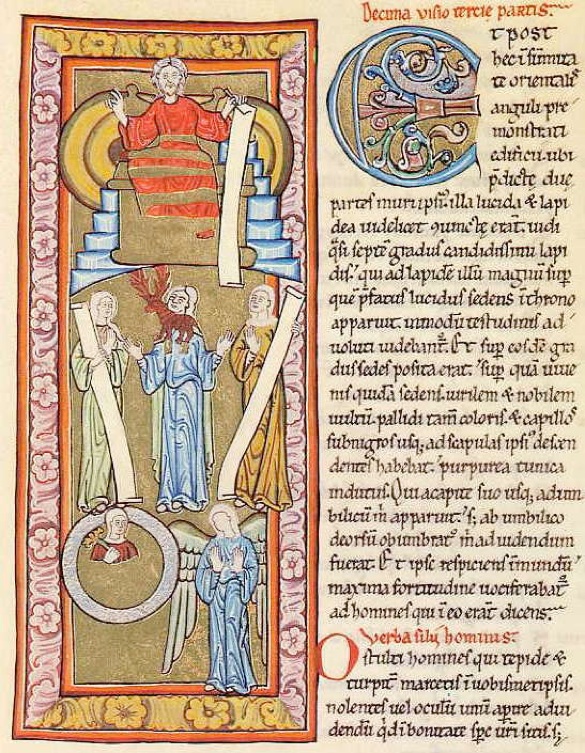 Decima visio tercie partis.
Et post
hec ī sūmita
te orientalis
anguli pre
monstrati
edificii. ubi
p̄dictę due
partes muri ipsi᾽. illa lucida & lapi
dea videlicet 9iuncte erāt. uidi
q̄si septē gradus candidissimi lapi
dis. qui ad lapidē illū magnū sup
quē p̄fatus lucidus sedens ī throno
apparuit. in modū testudinis ad
uoluti uidebant᷑. Et sup eosdē gra
dus sedes posita erat. sup quā iuue
nis quidā sedens. uirilem & nobilem
uultū. pallidi tam̄ coloris. & capillos
subnigros usq; ad scapulas ipsi᾽ descen
dentes habebat. purpurea tunica
indutus. Qui a capite suo usq; ad um
bilicū m̄ apparuit. s; ab umbilico
deorsū obumbrat᾽ m̄ ad uidendum
fuerat. Et ipse respiciens ī mundū
maxima fortitudine uociferabat᷑
ad homines qui ī eo erāt dicens.
Verba filii hominis.
O stulti homines qui tepide &
turpit᷑ marcetis ī uobismetipsis.
nolentes uel oculū unū apire ad ui
dendū qd̄ ī bonitate spc̄ ur̄i sitis. s;